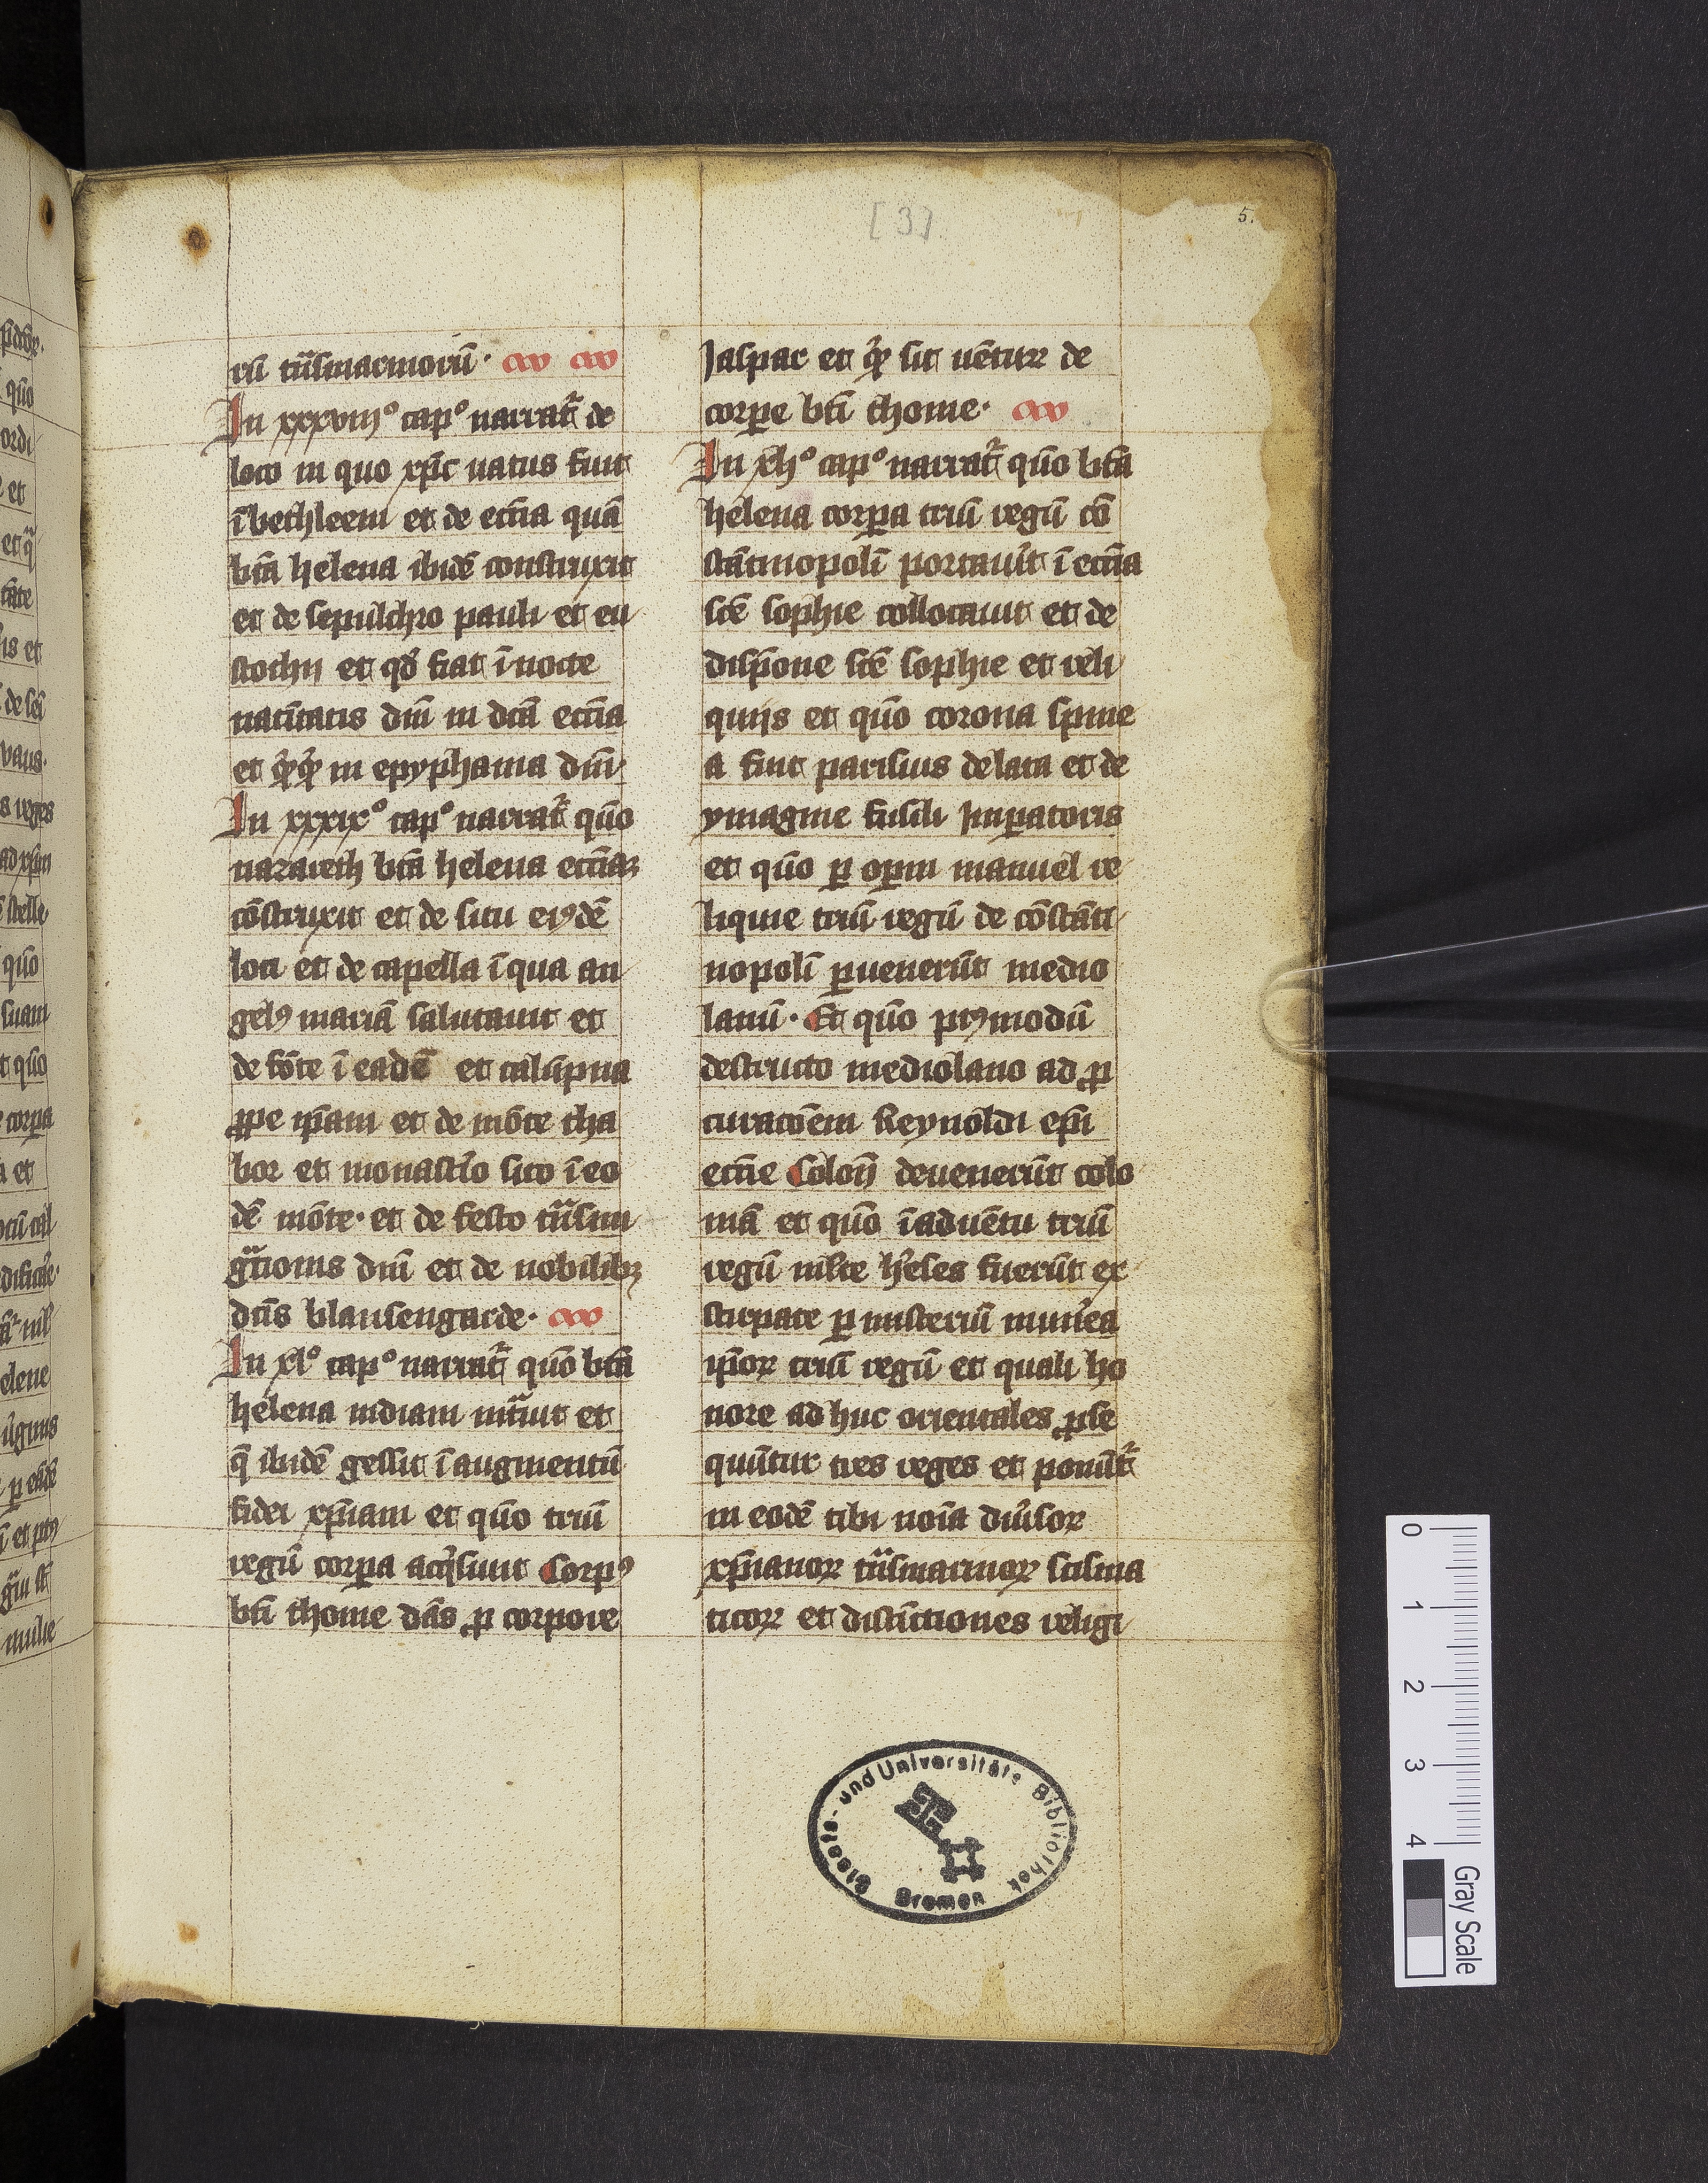 [3]
5.
rū tͣnsmarinorū·
In xxxviijº capº narratᷣ de
loco in quo xp̄c natus fuit
ī bethleem et de eccīa quā
btā helena ibidē construxit
et de sepulchro pauli et eu
stochij et qd̄ fiat ī nocte
natītatis dnī in dcā eccīa
et in epyphania dnī
In xxxixº capº narratᷣ quō
nazareth btā helena eccīaꝫ
cōstruxit et de situ eiꝰdē
loci et de capella ī qua an
gelꝰ mariā salutauit et
de fōte ī eadē et
ꝓpe ip̄am et de mōte tha
bor et monastīo sito ī eo
dē mōte· et de festo tͣnsfi
gͣtionis dnī et de nobilibꝫ
dcīs blansengarde·
In xlº capº narratᷣ quō btā
helena indiam intͣuit et
q̄ ibidē gessit ī augmentū
fidei xp̄iani et quō triū
regū corꝑa acqͥsiuit Corpꝰ
btī thome dās ꝓ corpore
Jaspar et sit de
corꝑe btī thome·
In xljº capº narratᷣ quō btā
helena corꝑa triū regū cō
stātinopolī portauīt ī eccīa
scē sophie collocauit et de
disp̄one scē sophie et reli
quijs et quō corona spine
a fuit parisius delata et de
ymagine fusili Imꝑatoris
et quō ꝑ opm manuel re
liquie triū regū de cōstāti
nopolī ꝑuenerūt medio
lanū· Et quō pꝰmodū
destructo mediolano ad ꝓ
curacōem Reynoldi ep̄i
eccīe Colon̄ deuenerūt colo
niā et quō ī aduētu triū
regū mlte h̓eses fuerūt ex
stirpate ꝑ misteriū munēa
ip̄oꝝ triū regū et quali ho
nore ad huc orientales ꝓse
quūtur tres reges et ponūtᷣ
in eodē tibi noīa diūsoꝝ
xp̄ianoꝝ tͣnsmarinoꝝ scisma
ticoꝝ et distīctiones religi
Staats- und Universitäts Bibliothek
Bremen
0
1
2
3
4
Gray Scale